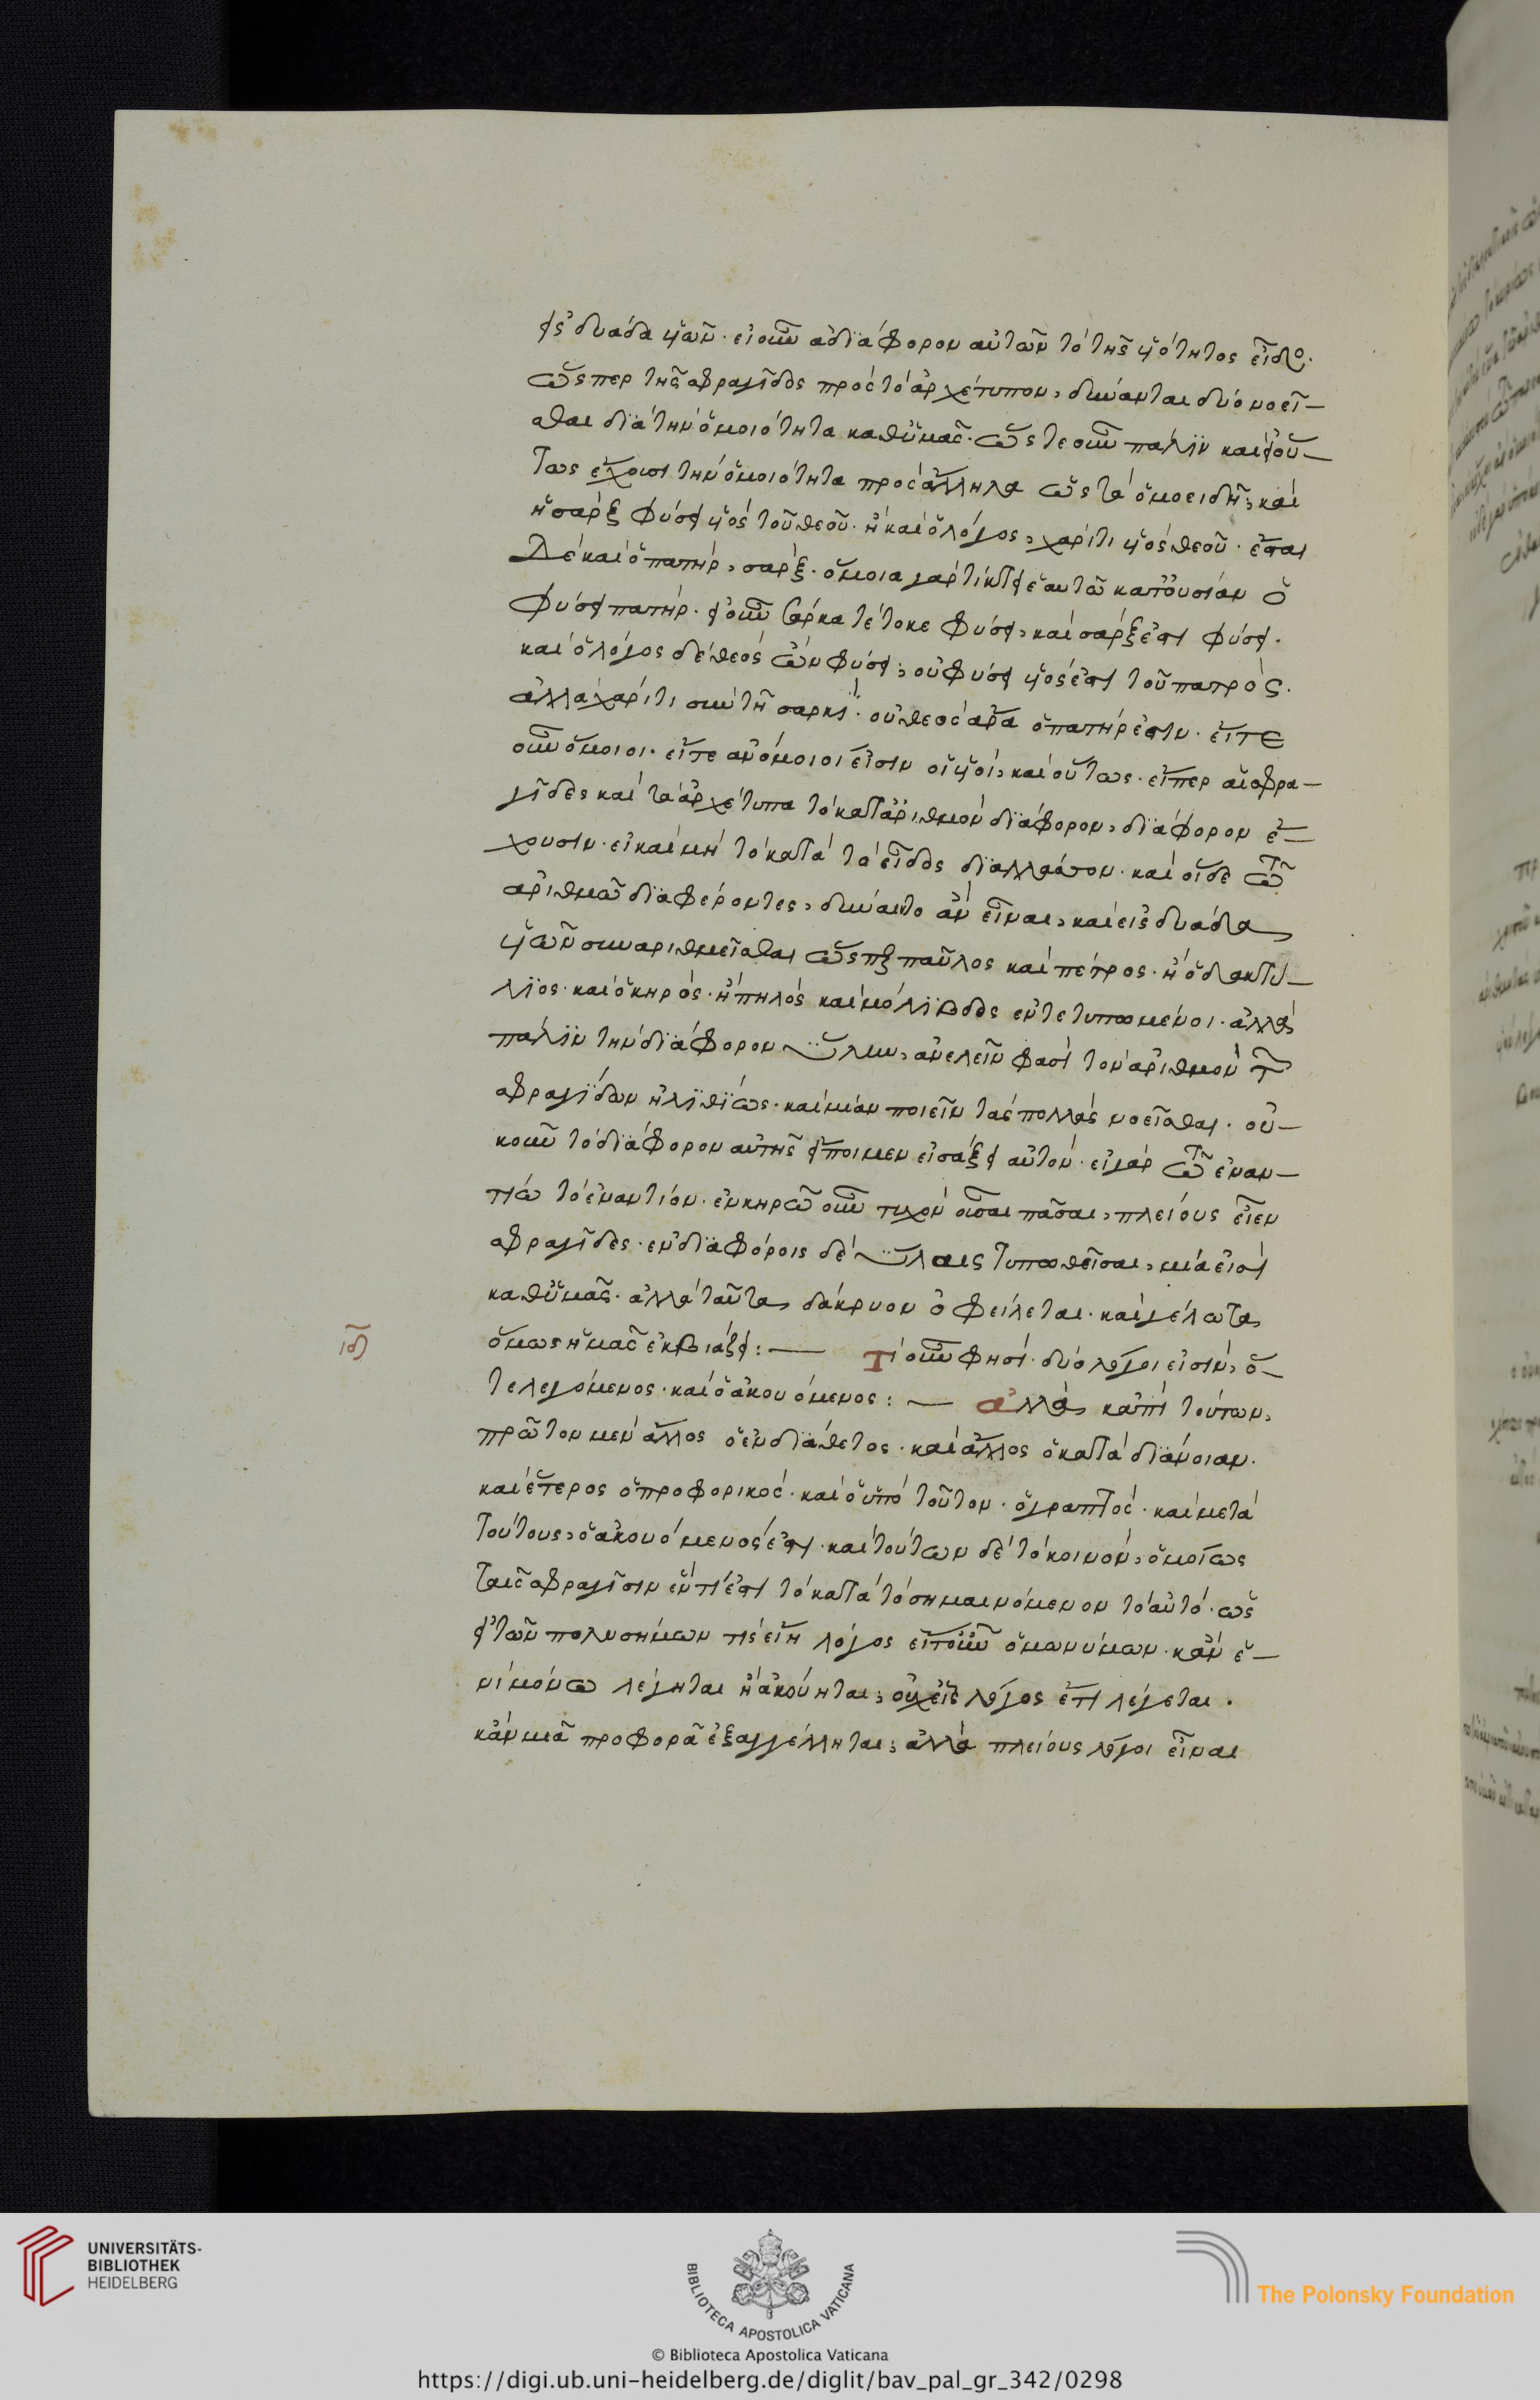 εἰς δυάδα υἱῶν. εἰ οὖν ἀδιάφορον αὐτῶν τὸ τῆς υἱότητος εἶδος.
ὥσπερ τῆς σφραγῖδος πρὸς τὸ ἀρχέτυπον, δύνανται δύο νοεῖ-
σθαι διὰ τὴν ὁμοιότητα καθ' ὑμᾶς. ὥστε οὖν πάλιν καὶ εἰ οὕ-
τως ἔχοιεν τὴν ὁμοιότητα πρὸς ἄλληλα ὡς τὰ ὁμοειδῆ, καὶ
ἡ σὰρξ φύσει υἱὸς τοῦ θεοῦ. ἢ καὶ ὁ λόγος, χάριτι υἱὸς θεοῦ. ἔσται
δὲ καὶ ὁ πατὴρ, σάρξ. ὅμοια γὰρ τίκτει ἑαυτῷ κατ' οὐσίαν ὁ
φύσει πατήρ. εἰ οὖν σάρκα τέτοκε φύσει, καὶ σάρξ ἐστι φύσει.
καὶ ὁ λόγος δὲ θεὸς ὢν φύσει, οὐ φύσει υἱός ἐστι τοῦ πατρός.
ἀλλὰ χάριτι σὺν τῇ σαρκί. οὐ θεὸς ἄρα ὁ πατήρ ἐστιν. εἴτε
οὖν ὅμοιοι. εἴτε ἀνόμοιοί εἰσιν οἱ υἱοί, καὶ οὕτως. εἴπερ αἱ σφρα-
γῖδες καὶ τὰ ἀρχέτυπα τὸ κατ' ἀριθμὸν διάφορον, διάφορον ἔ-
χουσιν. εἰ καὶ μὴ τὸ κατὰ τὸ εἶδος διαλλάττον. καὶ οἵδε τῷ
ἀριθμῷ διαφέροντες, δύναιντο ἂν εἶναι, καὶ εἰς δυάδα
υἱῶν συναριθμεῖσθαι ὥσπερ παῦλος καὶ πέτρος. ἢ ὁ δακτύ-
λιος. καὶ ὁ κηρός. ἢ πηλὸς καὶ μόλιβδος ἐντετυπωμένοι. ἀλλὰ
πάλιν τὴν διάφορον ὕλην, ἀνελεῖν φασὶ τὸν ἀριθμὸν τῶν
σφραγίδων ἠλιθίως. καὶ μίαν ποιεῖν τὰς πολλὰς νοεῖσθαι. οὐ-
κοῦν τὸ διάφορον αὐτῆς εἴποιμεν εἰσάξει αὐτόν. εἰ γὰρ τῷ ἐναν-
τίῳ τὸ ἐναντίον. ἐν κηρῷ οὖν τυχὸν οὖσαι πᾶσαι, πλείους εἶεν
σφραγῖδες. ἐν διαφόροις δὲ ὕλαις τυπωθεῖσαι, μία εἰσὶ
καθ' ὑμᾶς. ἀλλὰ ταῦτα δάκρυον ὀφείλεται. καὶ γέλωτα
ιδ
ὅμως ἡμᾶς ἐκβιάζει: Τί οὖν φησὶ. δύο λόγοι εἰσίν, ὅ-
τε λεγόμενος. καὶ ὁ ἀκουόμενος: ἀλλὰ κἀπὶ τούτων,
πρῶτον μὲν ἄλλος ὁ ἐνδιάθετος. καὶ ἄλλος ὁ κατὰ διάνοιαν.
καὶ ἕτερος ὁ προφορικός. καὶ ὁ ὑπὸ τοῦτον. ὁ γραπτός. καὶ μετὰ
τούτους, ὁ ἀκουόμενός ἐστι. καὶ τούτων δὲ τὸ κοινὸν, ὁμοίως
ταῖς σφραγῖσιν ἕν τί ἐστι τὸ κατὰ τὸ σημαινόμενον τὸ αὐτό. ὡς
εἰ τῶν πολυσήμων τίς εἴη λόγος εἴτουν ὁμωνύμων. κἂν ἑ-
νὶ μόνῳ λέγηται ἢ ἀκούηται, οὐχ εἷς λόγος ἔτι λέγεται.
κἂν μιᾷ προφορᾷ ἐξαγγέλληται, ἀλλὰ πλείους λόγοι εἶναι
UNIVERSITÄTS-
BIBLIOTHEK
HEIDELBERG
BIBLIOTECA APOSTOLICA VATICANA
The Polonsky Foundation
© Biblioteca Apostolica Vaticana
https://digi.ub.uni-heidelberg.de/diglit/bav_pal_gr_342/0298